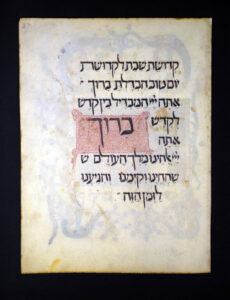 קדושת שבת לקדושת
יום טוב הבדלת ברוך
אתה ייי המבדיל בין קדש
לקדש
ברוך
אתה
ייי אלהינו מלך העולם ש
שהחיינו וקיימנו והגיענו
לזמן הזה